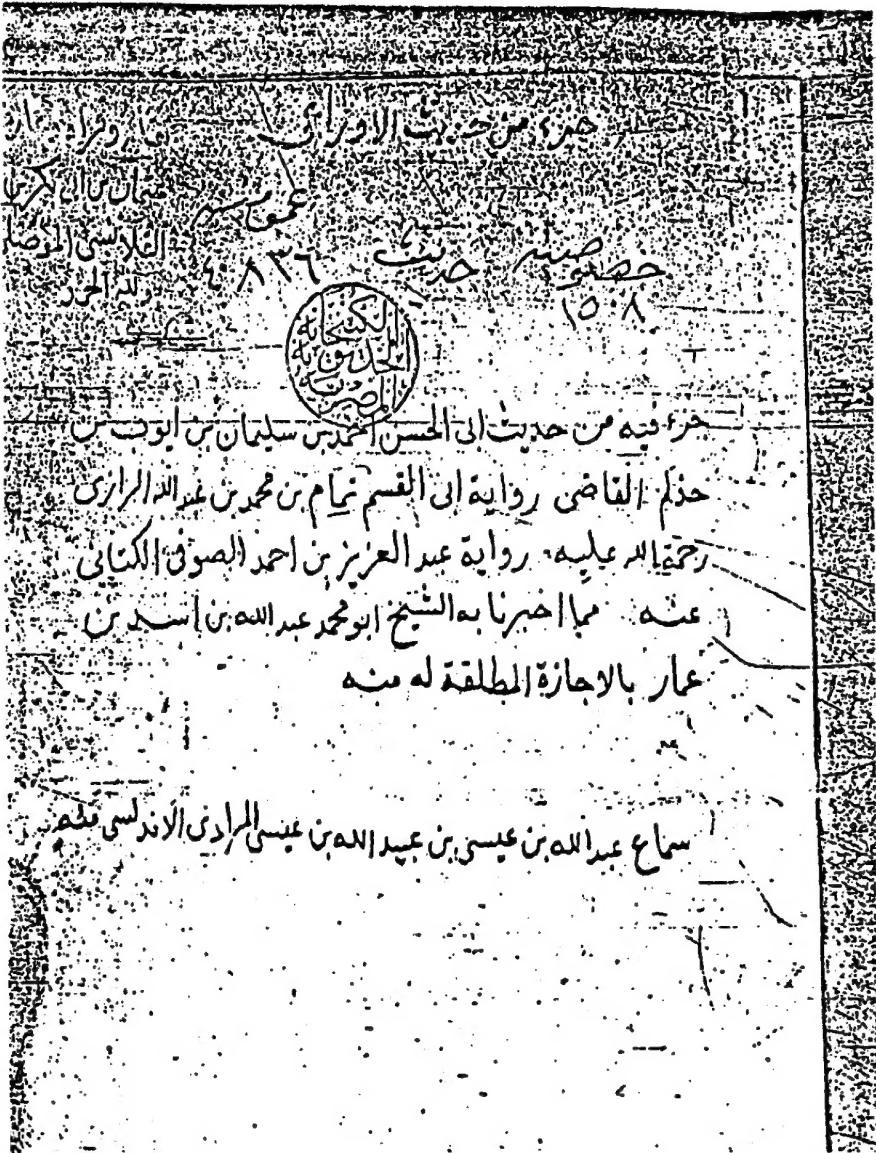 جزء من حديث الاوزاعى
عمومية
خصوصية حديث ٤٠٨٣٦
١٥٠٨
القلانسى
الكتبخانة
الخديوية
المصرية
جزء فيه من حديث ابى الحسن احمد بن سليمان بن ايوب بن
حذلم القاضى رواية ابى القسم تمام بن محمد بن عبد الله الرازى
رحمة الله عليه رواية عبد العزيز بن احمد الصوفى الكتانى
عنه مما اخبرنا به الشيخ ابو محمد عبد الله بن اسد بن
عمار بالاجازة المطلقة له منه
سماع عبد الله بن عيسى بن عبيد الله بن عيسى المرادى الاندلسى منه